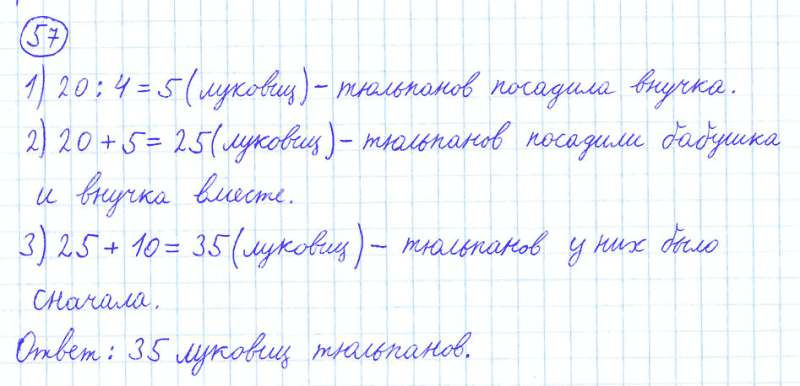 57
1) 20 : 4 = 5 (луковиц) – тюльпанов посадила внучка.
2) 20 + 5 = 25 (луковиц) – тюльпанов посадили бабушка
и внучка вместе.
3) 25 + 10 = 35 (луковиц) – тюльпанов у них было
сначала.
Ответ: 35 луковиц тюльпанов.